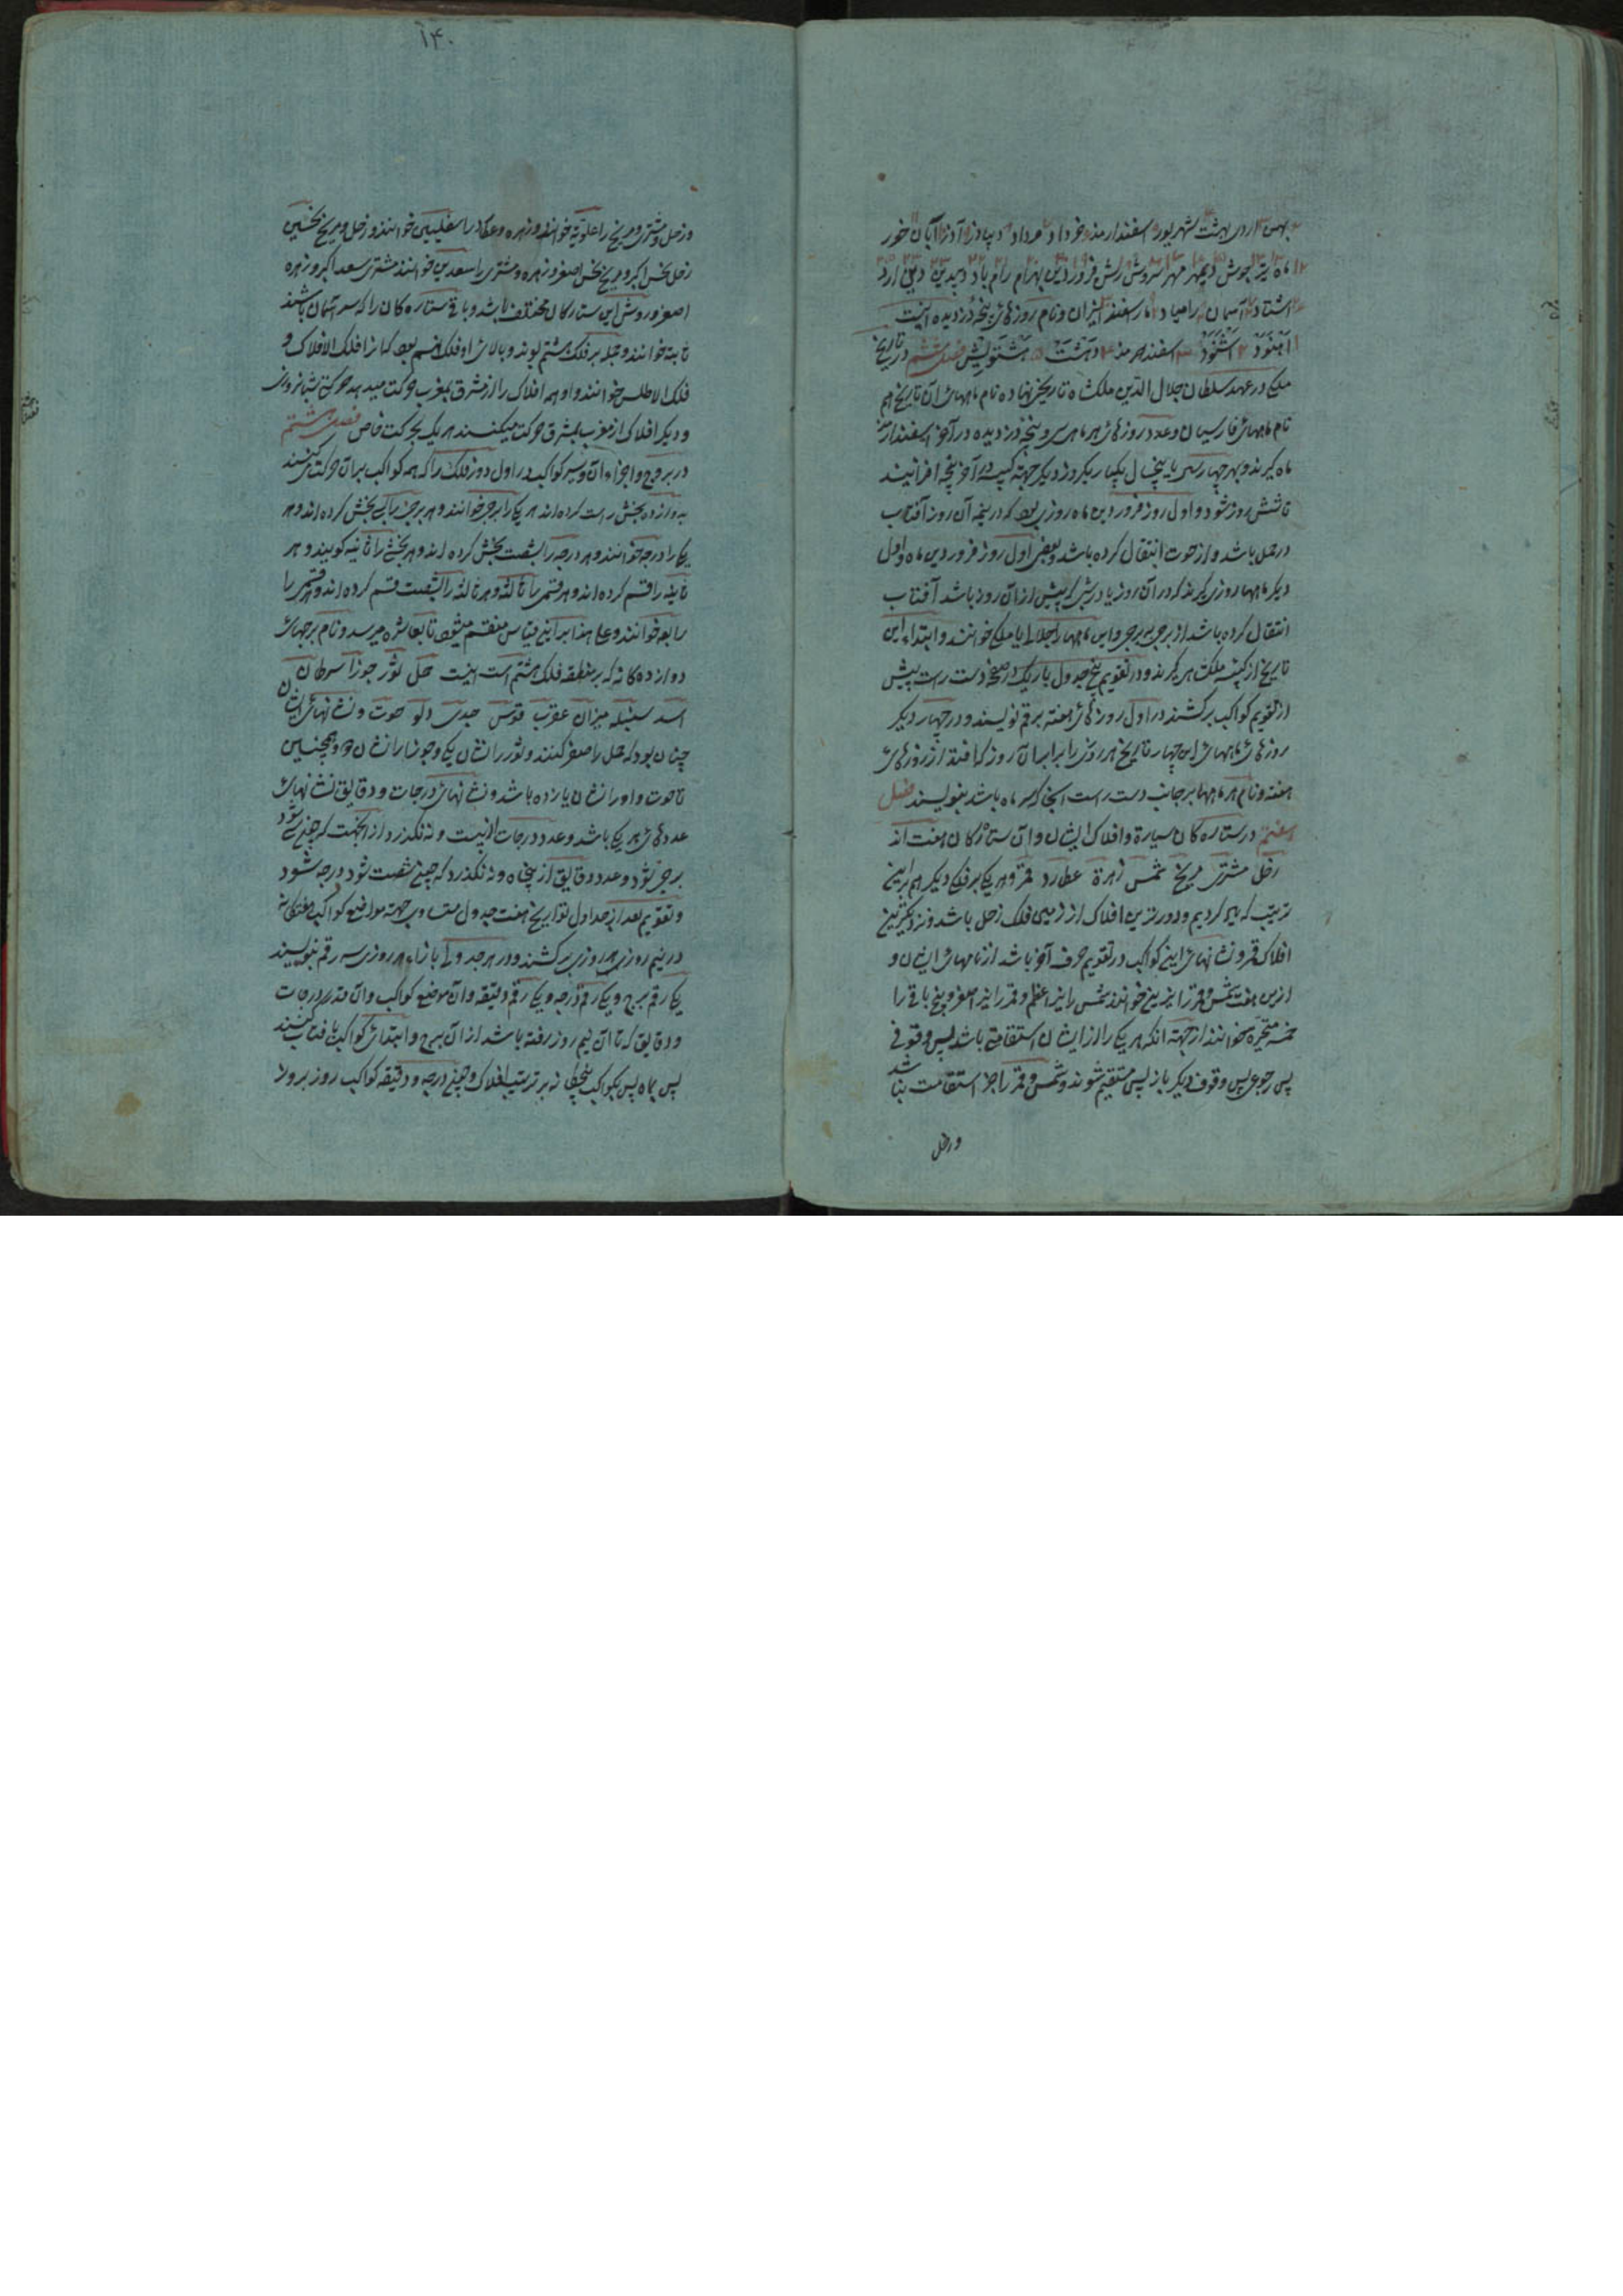 بهمن اردی بهشت شهریور اسفندارمذ خرداد مرداد دیباذر آذر آبان خور
ماه تیر جوش دیبمهر مهر سروش رش فروردین بهرام رام باد دیبدین دین ارد
اشتاد آسمان رامیاد مارسفند انیران و نام روزهای پنجه دزدیده اینست
اهنود اشنود اسفندمذ دهشت هشتویش فصل ششم در تاریخ
ملکی در عهد سلطان جلال الدین ملکشاه تاریخی نهاده نام ماههای آن تاریخ هم
نام ماههای فارسیان و عدد روزهای هر ماهی سی و پنجه دزدیده در آخر اسفندارمذ
ماه گیرند و بهر چهار سال یا پنج سال یکبار یکروز دیگر جهة کبیسه در آخر پنجه افزایند
تا شش روز شود و اول روز فروردین ماه روزی بود که در نیمه آن روز آفتاب
در حمل باشد و از حوت انتقال کرده باشد و بعضی اول روز فروردین ماه و اول
دیگر ماهها روزی گیرند که در آن روز یا در شبی که پیش از آن روز باشد آفتاب
انتقال کرده باشد از برجی به برجی و این ماهها را جلالی یا ملکی خوانند و ابتداء این
تاریخ از کبیسه ملکشاهی گیرند و در تقویم پنج جدول باریک در صفحه دست راست پیش
از تقویم کواکب برکشند در اول روزهای هفته برقم نویسند و در چهار دیگر
روزهای ماههای این چهار تاریخ هر روزی را برابر آن روز که افتد از روزهای
هفته و نام هر ماهها بر جانب دست راست آنجا که سر ماه باشد بنویسند فصل
هفتم در ستاره کان سیارة و افلاک ایشان و آن ستارگان هفت اند
زحل مشتری مریخ شمس زهرة عطارد قمر و هر یکی بر فلکی دیگر هم براین
ترتیب که یاد کردیم و دورترین افلاک از زمین فلک زحل باشد و نزدیکترین
افلاک قمر و نشانهای این کواکب در تقویم حرف آخر باشد از نامهای ایشان و
ازین هفت شمس و قمر را نیرین خوانند شمس را نیر اعظم و قمر را نیر اصغر و پنج باقی را
خمسه متحیره خوانند از جهة آنکه هر یکی را از ایشان استقامتی باشد پس وقوفی
پس رجوعی پس وقوف دیگر باز پس مستقیم شوند و شمس و قمر را جز استقامت نباشد
وزحل
۱۴۰
وزحل و مشتری و مریخ را علویه خوانند و زهره و عطارد را سفلیین خوانند و زحل و مریخ نحسین
زحل نحس اکبر و مریخ نحس اصغر و زهره و مشتری را سعدین خوانند مشتری سعد اکبر و زهره
اصغر و روش این ستارگان مختلف باشد و باقی ستاره کان را که بر آسمان باشند
ثابته خوانند و جمله بر فلک هشتم بوند و بالای او فلک نهم بود که انرا فلک الافلاک و
فلک الاطلس خوانند و او همه افلاک را از مشرق بمغرب حرکت میدهد حرکتی شبانروزی
و دیگر افلاک از مغرب بمشرق حرکت میکنند هر یک بحرکت خاص فصل هشتم
در بروج و اجزاء آن و سیر کواکب در اول دور فلک را که همه کواکب بر آن حرکت کنند
بدوازده بخش راست کرده اند هر یکی را برجی خوانند و هر برجی را بسی بخش کرده اند و هر
یکی را درجه خوانند و هر درجه را بشصت بخش کرده اند و هر بخشی را ثانیه گویند و هر
ثانیه را قسم کرده اند و هر قسمی را ثالثه و هر ثالثه را بشصت قسم کرده اند و هر قسمی را
رابعه خوانند و علی هذا بر این قیاس منقسم میشود تا بعاشره میرسد و نام برجهای
دوازده گانه که بر منطقه فلک هشتم است اینست حمل ثور جوزا سرطان
اسد سنبله میزان عقرب قوس جدی دلو حوت و نشانهای ایشان
چنان بود که حمل را صفر کنند و ثور را نشان یکی و جوزا را نشان دو و همچنین
تا حوت و او را نشان یازده باشد و نشانهای درجات و دقایق نشانهای
عددهای هر یکی باشد و عدد درجات از بیست و نه نگذرد از آنجهت که چون سی شود
برجی شود و عدد دقایق از پنجاه و نه نگذرد که چون شصت شود درجه شود
و تقویم بعد از جداول تواریخ هفت جدول متساوی جهة مواضع کواکب هفتگانه
در نیم روز هر روزی برکشند و در هر جدولی بازاء هر روزی سه رقم بنویسند
یکی رقم برج و یکی رقم درجه و یکی رقم دقیقه و آن موضع کواکب و آن قدر درجات
و دقایق که تا آن نیم روز رفته باشد از آن برج و ابتدای کواکب بافتاب کنند
پس بماه پس بکواکب پنجگانه بر ترتیب افلاک و چون درجه و دقیقه کواکب روز بروز